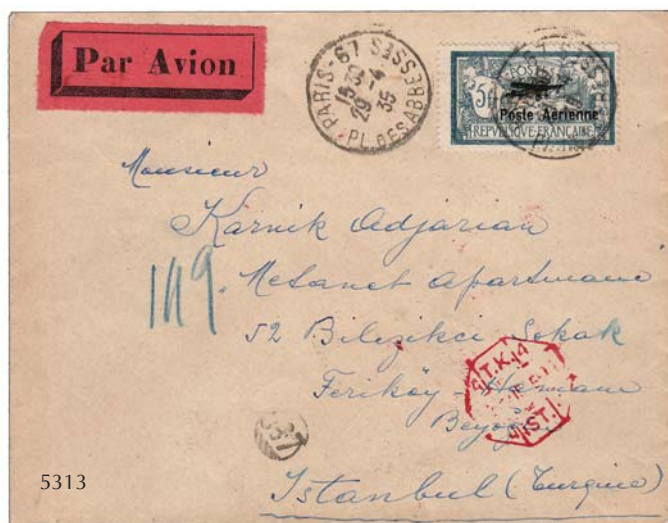 Par Avion
PARIS-67
15 30
29 -4
35
PL. DES ABBESSES
POSTES
5f
Poste Aérienne
REPVBLIQVE FRANÇAISE
Monsieur
Karnik Adjarian
149.
Metanet Apartmane
52 Bilezikci Sokak
Feriköy - Hamam
Beyoğlu
P.T.K.14
IST.
337
5313
Istanbul (Turquie)